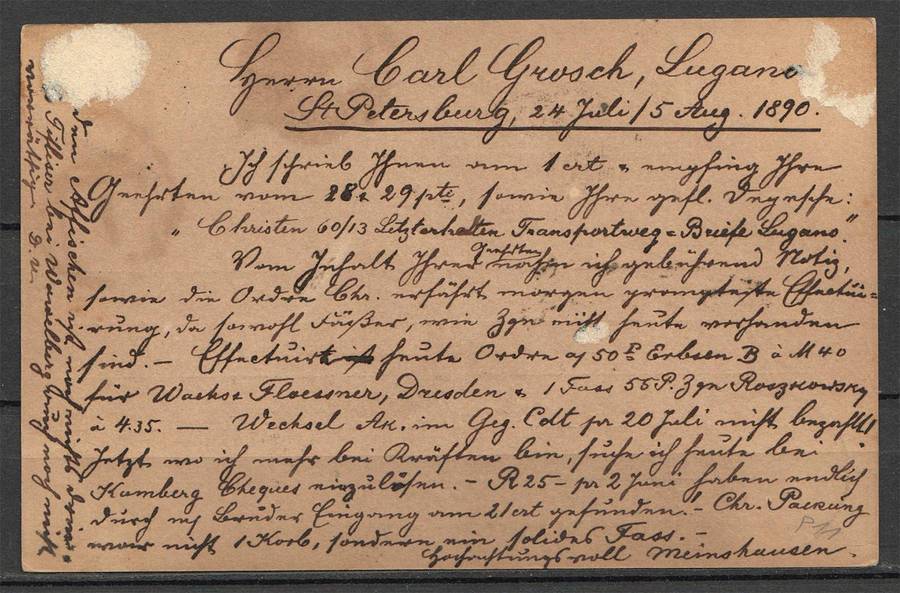 Herrn Carl Grosch, Lugano
St Petersburg, 24 Juli/5 Aug. 1890.
Ich schrieb Ihnen am 1 crt & empfing Ihre
Geehrten vom 28 & 29 pto, sowie Ihre gefl. Depesche:
„Christen 60/13 Letzterhalten Transportweg = Briefe Lugano."
Vom Inhalt Ihrer Geehrten nahm ich gebührend Notiz,
sowie die Ordre Chr. erfährt morgen prompteste Effectui=
rung, da sowohl Fäßer, wie Zgn nicht heute vorhanden
sind. – Effectuirt ist heute Ordre 50 P Erbsen B à M 40
für Wachs & Floessner, Dresden & 1 Fass 55 P. Zgn Roszkowsky
à 4.35. — Wechsel Ak. im Geg. Cdt pr 20 Juli nicht bezahlt!
Jetzt wo ich mehr bei Kräften bin, suche ich heute bei
Kamberg Cheques einzulösen. – R 25 – pr 2 Juni haben endlich
durch m/ Bruder Eingang am 21 crt gefunden! – Chr. Packung
war nicht 1 Korb, sondern ein solides Fass. –
Hochachtungsvoll Meinshausen.
P. 11
dem noch nicht
bei Wawelberg noch nicht
vorräthig D. O.